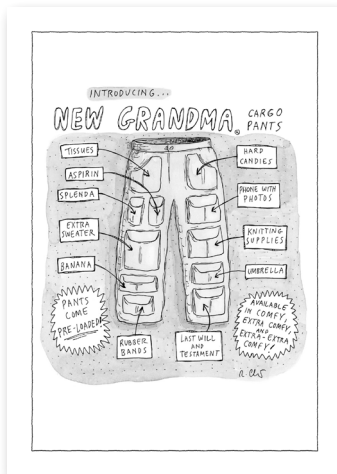 INTRODUCING...
NEW GRANDMA® CARGO
PANTS
TISSUES
ASPIRIN
SPLENDA
EXTRA
SWEATER
BANANA
RUBBER
BANDS
HARD
CANDIES
PHONE WITH
PHOTOS
KNITTING
SUPPLIES
UMBRELLA
LAST WILL
AND
TESTAMENT
PANTS
COME
PRE-LOADED!
AVAILABLE
IN COMFY,
EXTRA COMFY,
AND
EXTRA-EXTRA
COMFY!